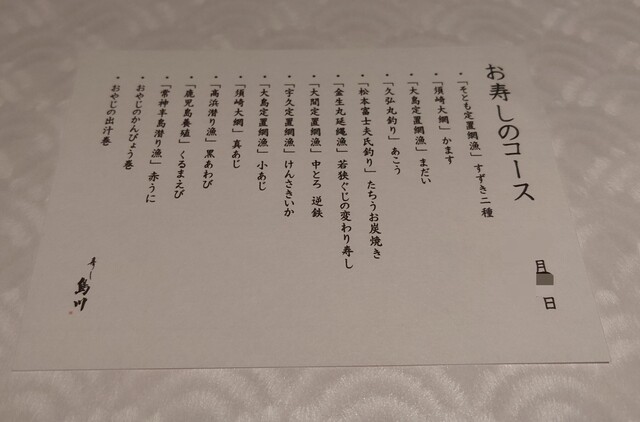 お寿しのコース
月 日
・「そとも定置網漁」すずき二種
・「須崎大網」かます
・「大島定置網漁」まだい
・「久弘丸釣り」あこう
・「松本富士夫氏釣り」たちうお炭焼き
・「金生丸延縄漁」若狭ぐじの変わり寿し
・「大間定置網漁」中とろ 逆鉄
・「宇久定置網漁」けんさきいか
・「大島定置網漁」小あじ
・「須崎大網」真あじ
・「高浜潜り漁」黒あわび
・「鹿児島養殖」くるまえび
・「常神半島潜り漁」赤うに
・おやじのかんぴょう巻
・おやじの出汁巻
寿し